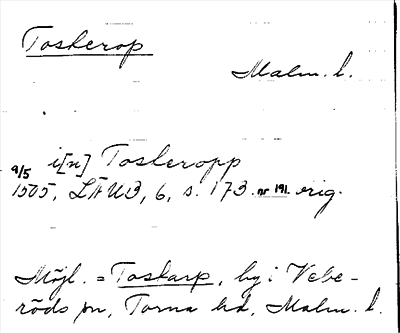 Toskerop
Malm. l.
i[n] Toskeropp
9/5
1505, LÄUB, 6, s. 173 nr 191. orig.
Möjl. = Toskarp, by i Vebe-
röds sn, Torna hd, Malm. l.